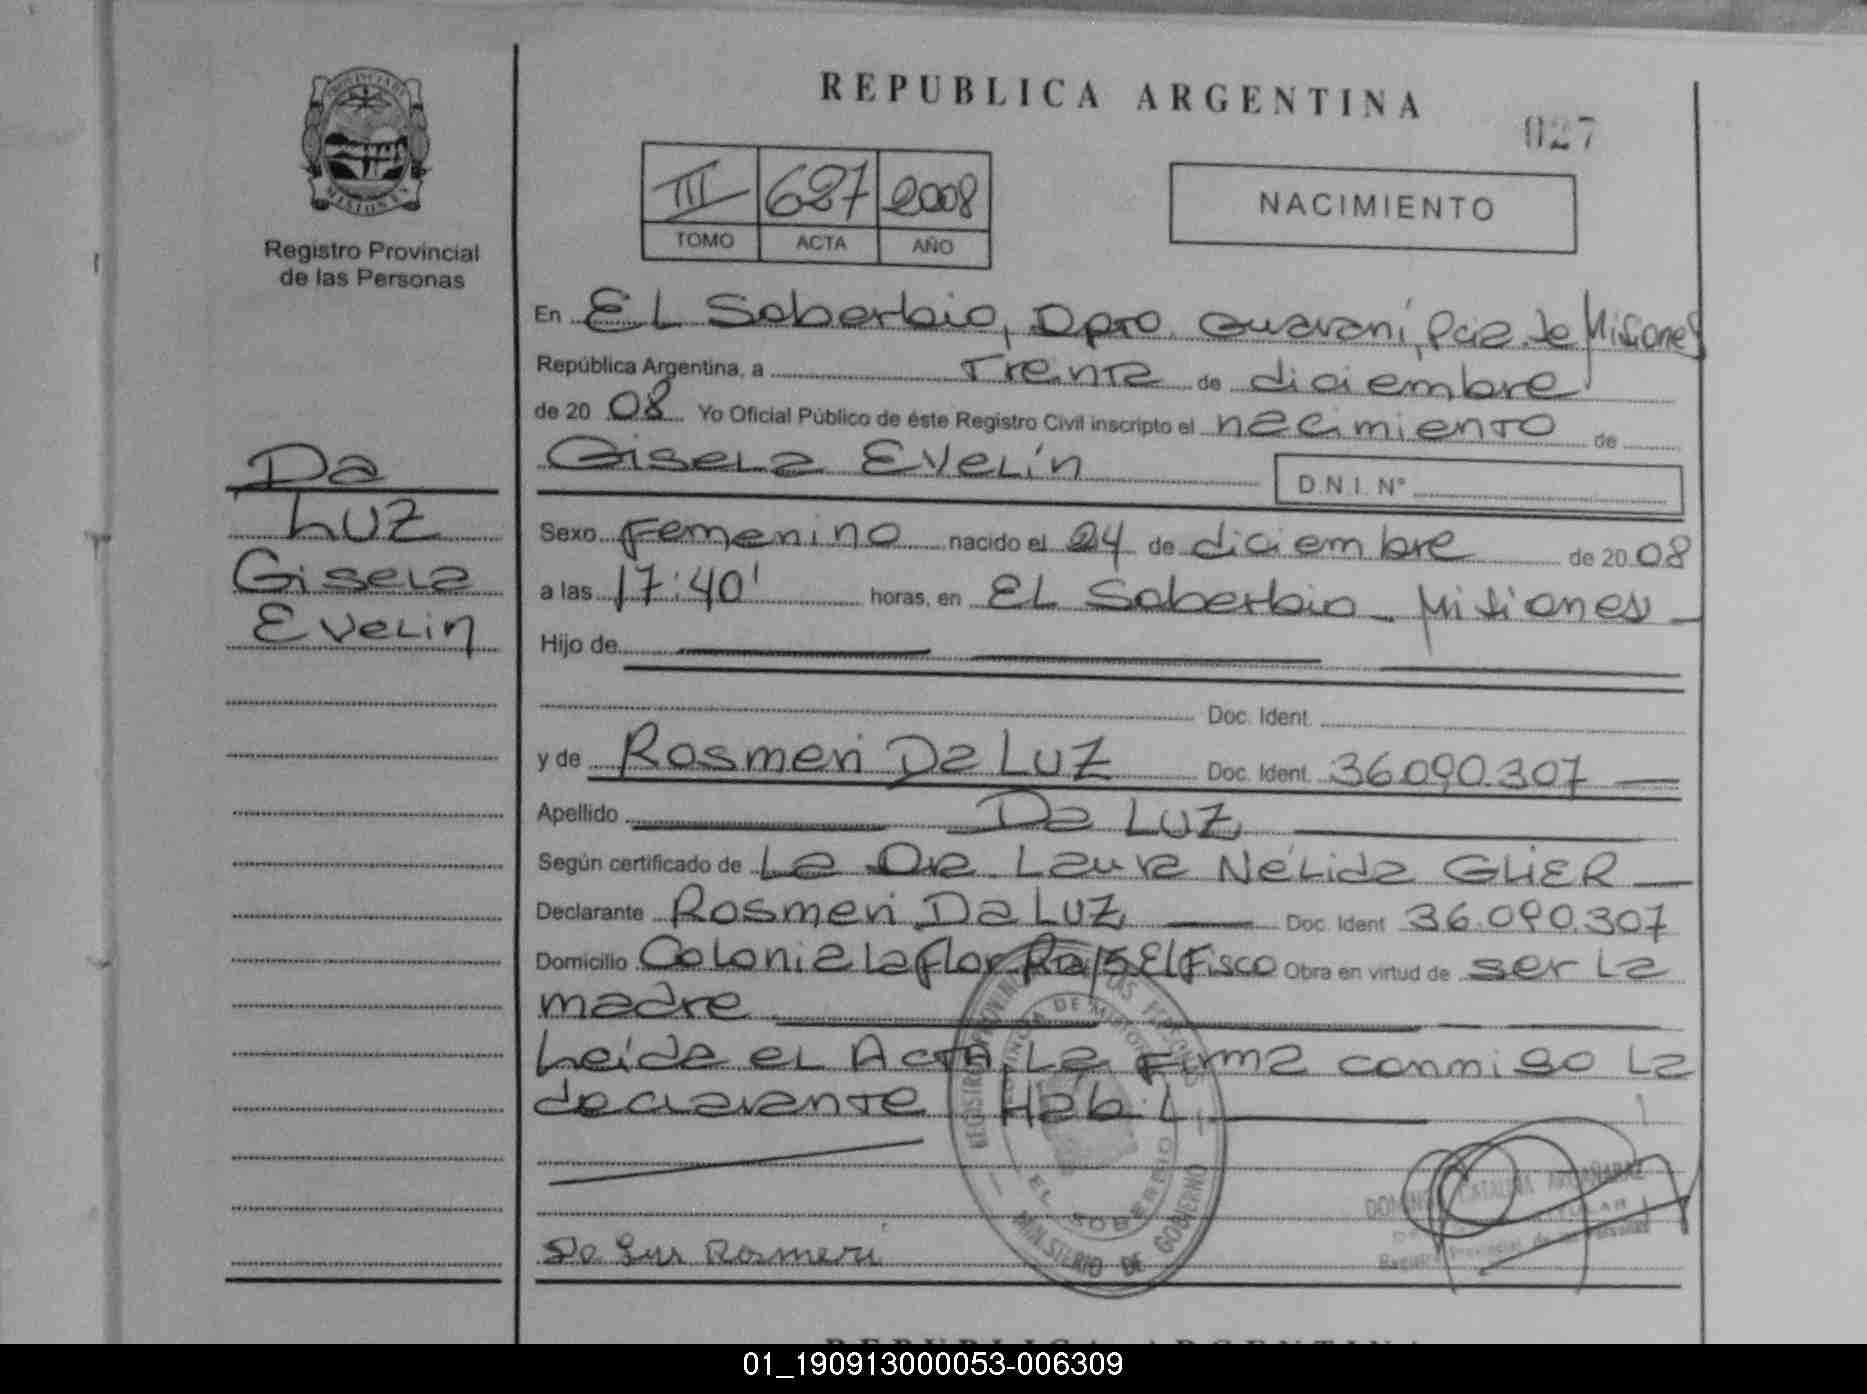 REPUBLICA ARGENTINA
027
PROVINCIA DE
MISIONES
Registro Provincial
de las Personas
III 627 2008
TOMO ACTA AÑO
NACIMIENTO
En EL Soberbio, Dpto. Guaraní, Pcia. de Misiones
República Argentina, a Treinta de diciembre
de 20 08 Yo Oficial Público de éste Registro Civil inscripto el nacimiento de
Gisela Evelín D.N.I. Nº
Da
Luz
Gisela
Evelin
Sexo Femenino nacido el 24 de diciembre de 20 08
a las 17:40' horas, en EL Soberbio - Misiones -
Hijo de
Doc. Ident.
y de Rosmeri Da Luz Doc. Ident. 36.090.307
Apellido Da Luz
Según certificado de La Dra. Laura Nélida GLIER
Declarante Rosmeri Da Luz Doc. Ident 36.090.307
Domicilio Colonia La Flor El Fisco Obra en virtud de ser la
madre
Leída el Acta, La Firma conmigo la
declarante Hábil
REGISTRO PROVINCIAL DE LAS PERSONAS
PROVINCIA DE MISIONES
EL SOBERBIO
MINISTERIO DE GOBIERNO
CATALINA
Registro Provincial de las Personas
Da Luz Rosmeri
REPUBLICA ARGENTINA
01_190913000053-006309